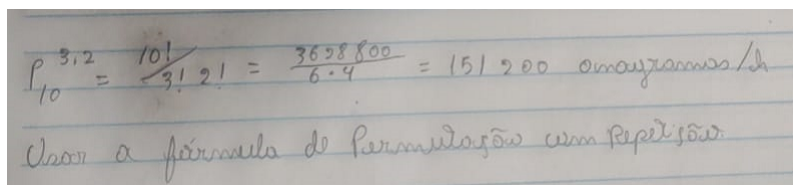 P₁₀³,² = 10! / 3! 2! = 3628800 / 6 · 4 = 151 200 anagramas //
Usar a fórmula de Permutação com Repetição.